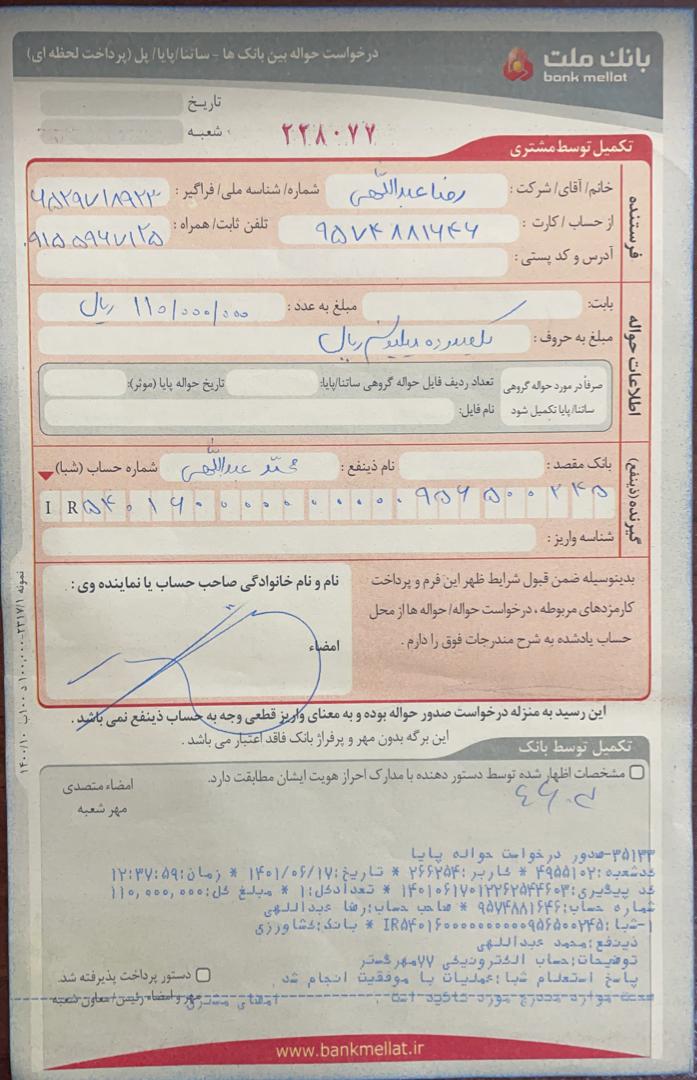 درخواست حواله بین بانک ها - ساتنا/پایا/ پل (پرداخت لحظه ای)
بانک ملت
bank mellat
تاریخ
شعبه :
۲۲۸۰۷۷
تکمیل توسط مشتری
فرستنده
خانم/ آقای/ شرکت : رضا عبداللهی شماره/ شناسه ملی/ فراگیر : ۶۵۲۹۷۱۸۹۲۳
از حساب /کارت : ۹۵۷۴۸۸۱۶۴۶ تلفن ثابت/ همراه : ۰۹۱۵۵۹۶۷۱۲۵
آدرس و کد پستی :
اطلاعات حواله
بابت: مبلغ به عدد : ۱۱۰/۰۰۰/۰۰۰ ریال
مبلغ به حروف : یکصدوده میلیون ریال
صرفاً در مورد حواله گروهی ساتنا/پایا تکمیل شود
تعداد ردیف فایل حواله گروهی ساتنا/پایا: تاریخ حواله پایا (موثر):
نام فایل:
گیرنده(ذینفع)
بانک مقصد : نام ذینفع : محمد عبداللهی شماره حساب (شبا)
IR ۵۴۰۱۶۰۰۰۰۰۰۰۰۰۰۹۵۶۵۰۰۲۴۵
شناسه واریز :
بدینوسیله ضمن قبول شرایط ظهر این فرم و پرداخت
کارمزدهای مربوطه ، درخواست حواله/ حواله ها از محل
حساب یادشده به شرح مندرجات فوق را دارم .
نام و نام خانوادگی صاحب حساب یا نماینده وی :
امضاء
این رسید به منزله درخواست صدور حواله بوده و به معنای واریز قطعی وجه به حساب ذینفع نمی باشد .
این برگه بدون مهر و پرفراژ بانک فاقد اعتبار می باشد .
تکمیل توسط بانک
مشخصات اظهار شده توسط دستور دهنده با مدارک احراز هویت ایشان مطابقت دارد.
امضاء متصدی
مهر شعبه
۳۵۱۳۳-صدور درخواست حواله پایا
کدشعبه:۴۹۵۵۱۰۲ * کاربر:۲۶۶۲۵۴ * تاریخ:۱۴۰۱/۰۶/۱۷ * زمان:۱۲:۳۷:۵۹
کد پیگیری:۱۴۰۱۰۶۱۷۰۱۲۲۶۲۵۴۴۶۰۳ * تعدادکل:۱ * مبلغ کل:۱۱۰,۰۰۰,۰۰۰
شماره حساب:۹۵۷۴۸۸۱۶۴۶ * صاحب حساب:رضا عبداللهی
۱-شبا:IR۵۴۰۱۶۰۰۰۰۰۰۰۰۰۰۹۵۶۵۰۰۲۴۵ * بانک:کشاورزی
ذینفع:محمد عبداللهی
توضیحات:حساب الکترونیکی ۷۷مهرگستر
پاسخ استعلام شبا:عملیات با موفقیت انجام شد
صحت موارد مندرج مورد تائید است . امضای مشتری
دستور پرداخت پذیرفته شد.
مهر و امضاء رئیس/ معاون شعبه
www.bankmellat.ir